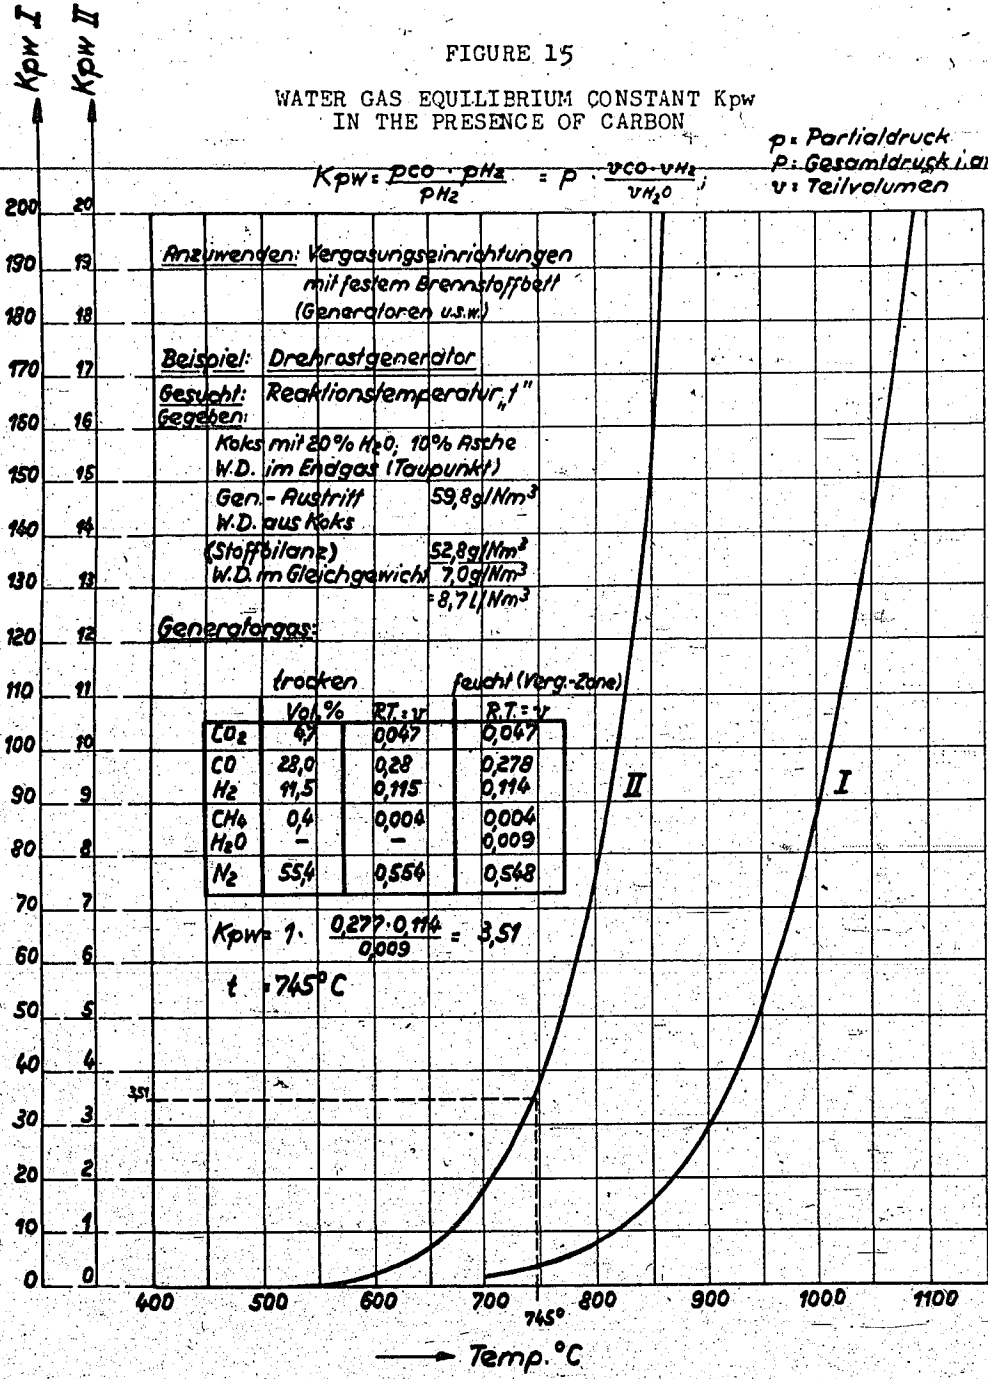 Kpw I
Kpw II
FIGURE 15
WATER GAS EQUILIBRIUM CONSTANT Kpw
IN THE PRESENCE OF CARBON
p = Partialdruck
P = Gesamtdruck i.at
v = Teilvolumen
Kpw = pCO · pH2 / pH2 = P · vCO · vH2 / vH2O ;
200 20
190 19
180 18
170 17
160 16
150 15
140 14
130 13
120 12
110 11
100 10
90 9
80 8
70 7
60 6
50 5
40 4
30 3
20 2
10 1
0 0
Anzuwenden: Vergasungseinrichtungen
mit festem Brennstoffbett
(Generatoren u.s.w.)
Beispiel: Drehrostgenerator
Gesucht: Reaktionstemperatur „t"
Gegeben:
Koks mit 20% H2O, 10% Asche
W.D. im Endgas (Taupunkt)
Gen.-Austritt 59,8g/Nm³
W.D. aus Koks
(Stoffbilanz) 52,8g/Nm³
W.D. im Gleichgewicht 7,0g/Nm³
= 8,7 l/Nm³
Generatorgas:
trocken feucht (Verg.-Zone)
Vol.% R.T. = v R.T. = v
CO2 4,7 0,047 0,047
CO 28,0 0,28 0,278
H2 11,5 0,115 0,114
CH4 0,4 0,004 0,004
H2O – – 0,009
N2 55,4 0,554 0,548
Kpw = 1 · 0,277 · 0,114 / 0,009 = 3,51
t = 745°C
II
I
3,51
400 500 600 700 800 900 1000 1100
745°
Temp. °C